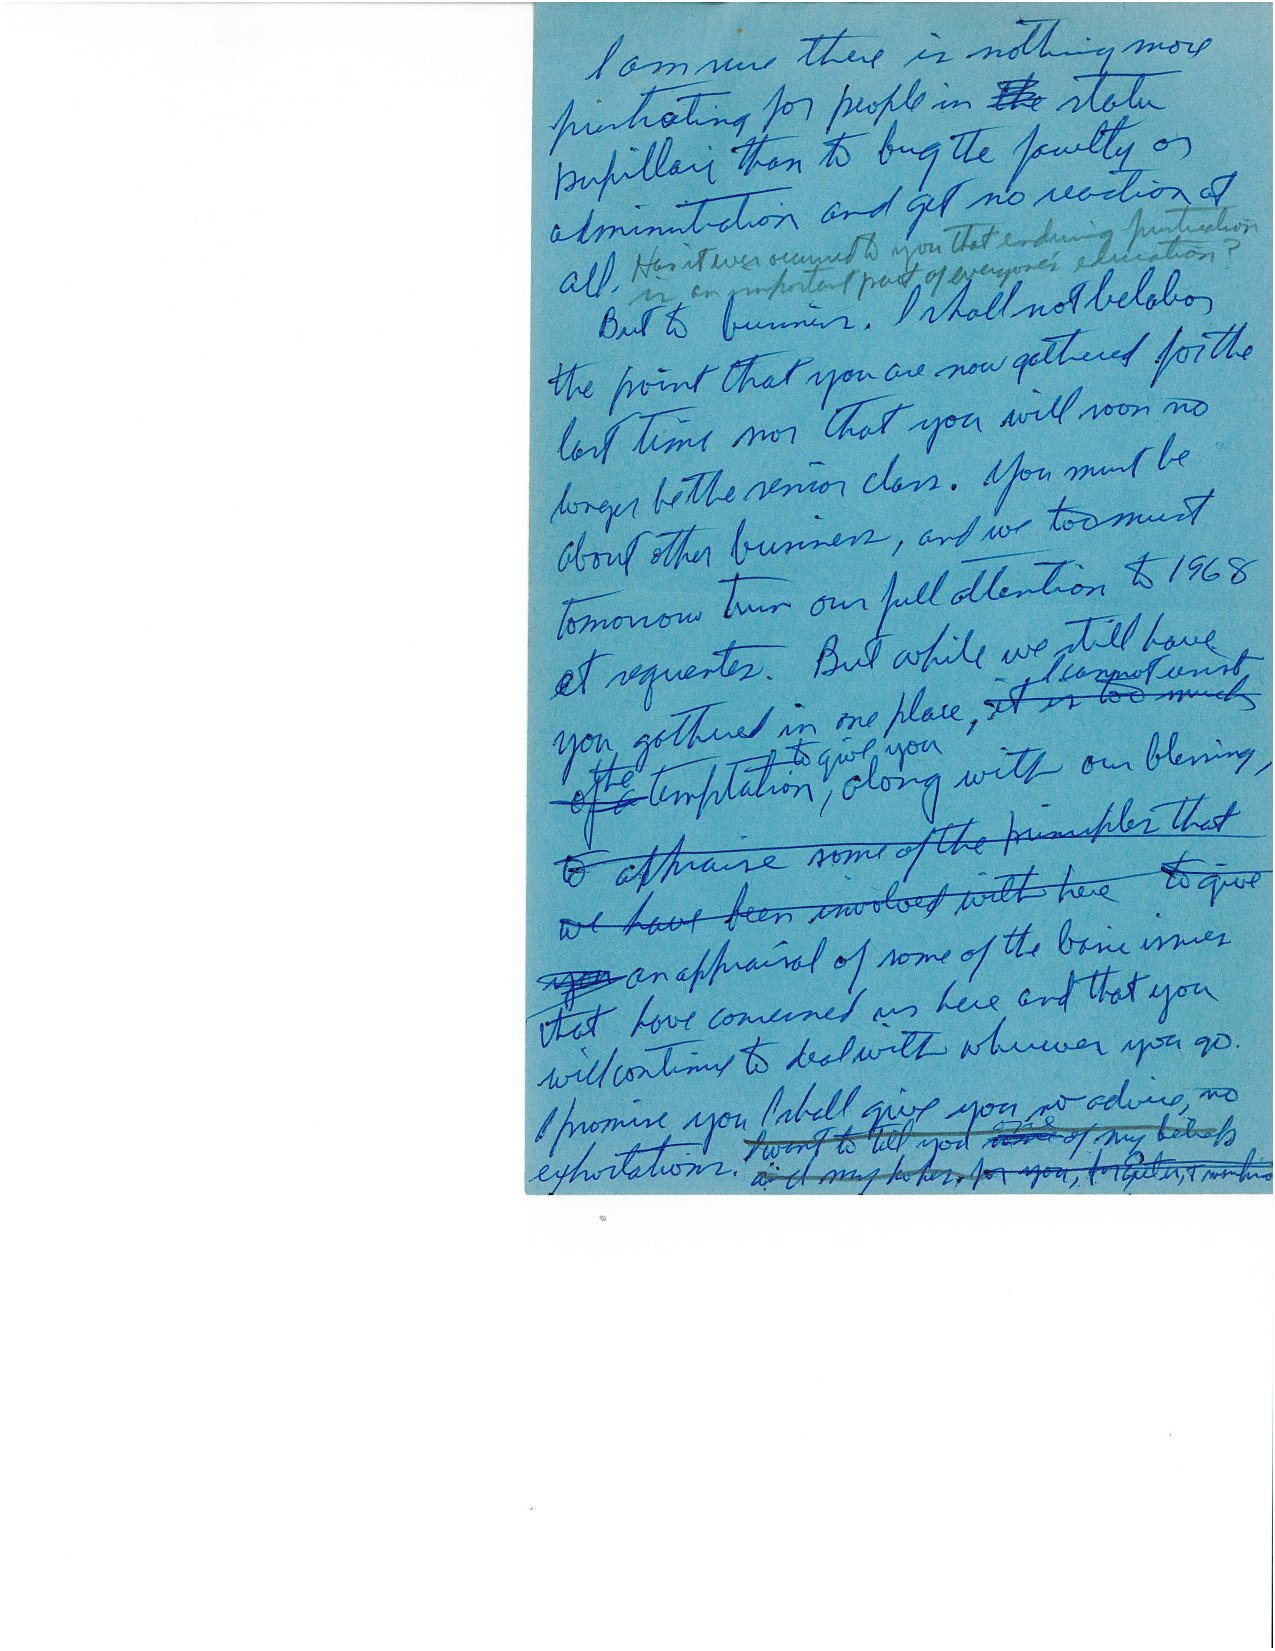 I am sure there is nothing more
frustrating for people in the statu
pupillari than to bug the faculty or
administration and get no reaction at
all. Has it ever occurred to you that enduring frustration
is an important part of everyone's education?
But to business. I shall not belabor
the point that you are now gathered for the
last time nor that you will soon no
longer be the senior class. You must be
about other business, and we too must
tomorrow turn our full attention to 1968
et sequentes. But while we still have
I cannot resist
you gathered in one place, it is too much
the to give you
of a temptation, along with our blessing,
to appraise some of the principles that
we have been involved with here to give
you an appraisal of some of the basic issues
that have concerned us here and that you
will continue to deal with wherever you go.
I promise you I shall give you no advice, no
exhortations. I want to tell you some of my beliefs
one
and my hopes for you, for Exeter, &